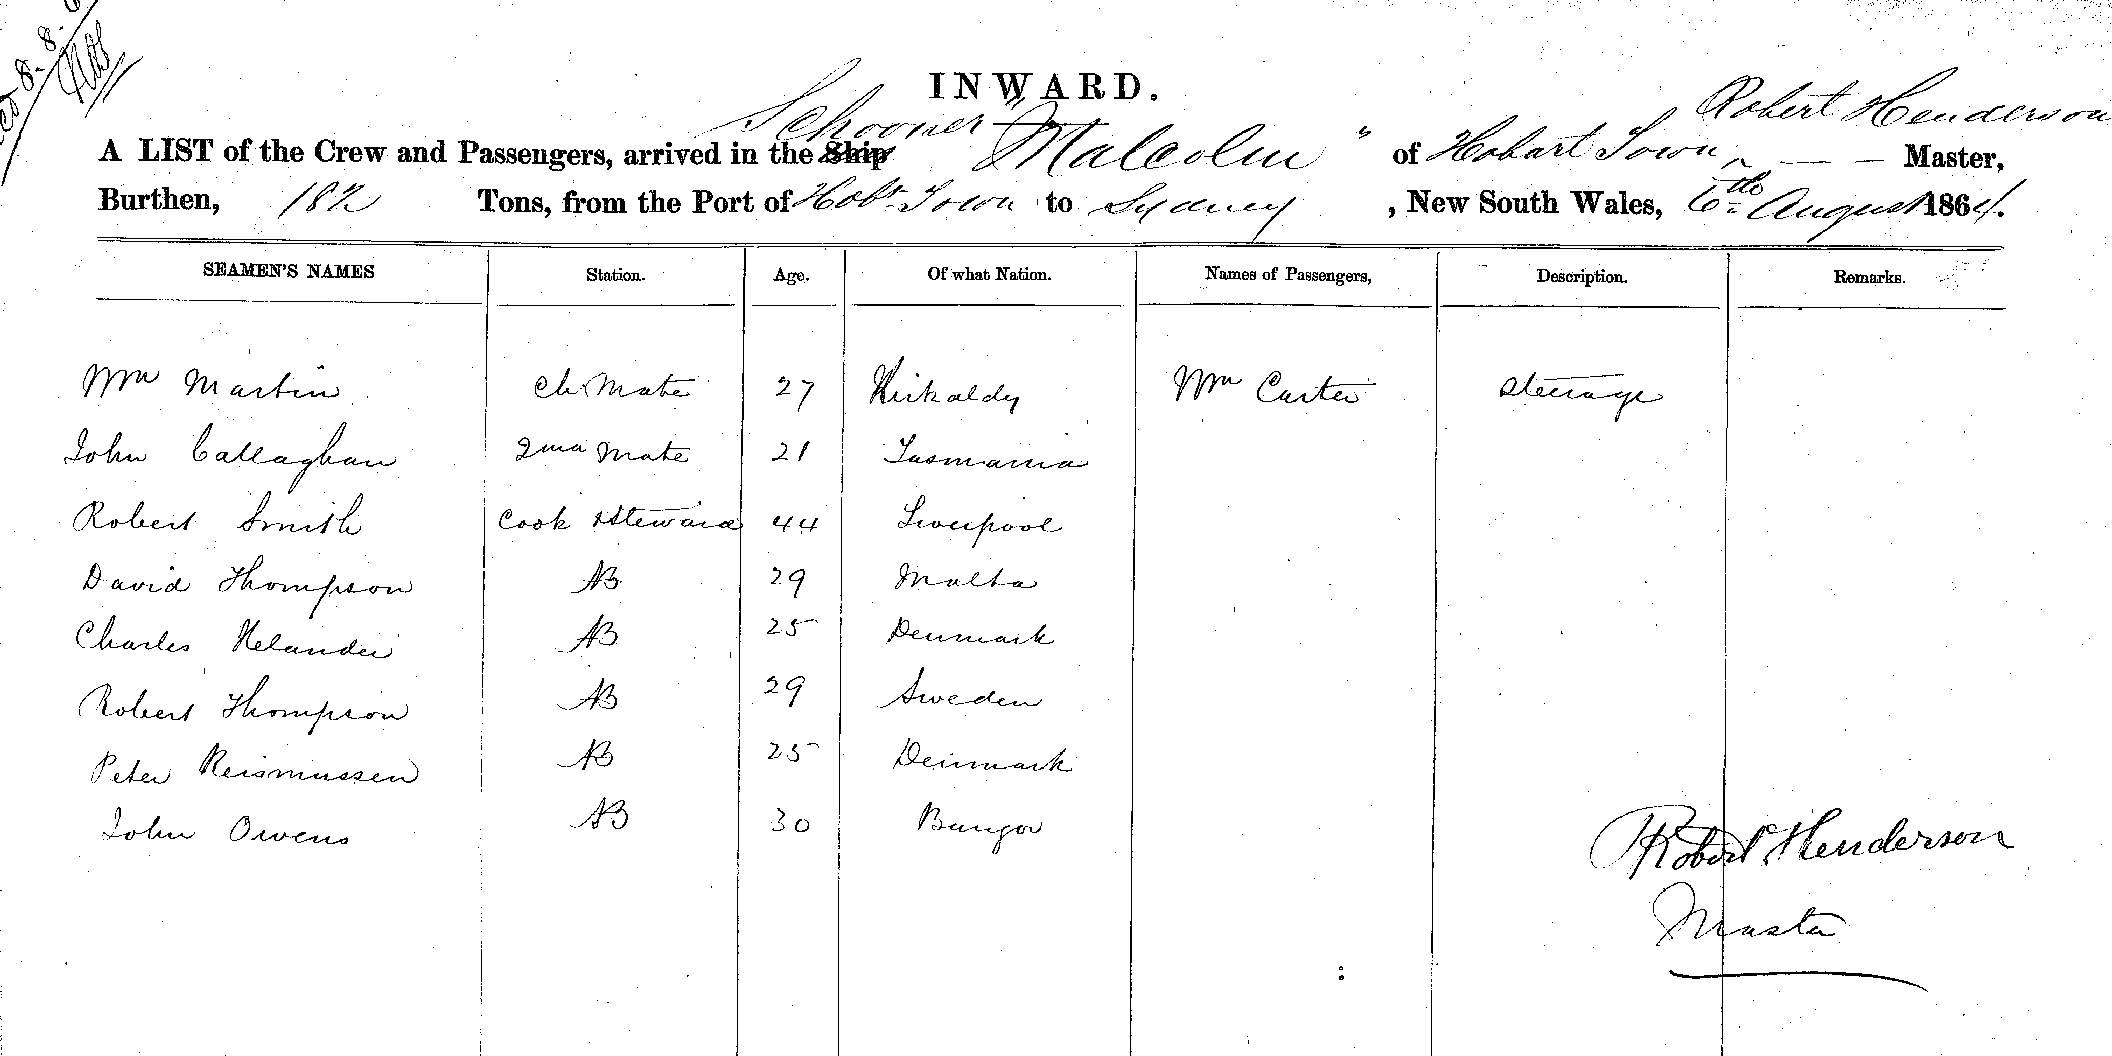 INWARD.
Robert Henderson
A LIST of the Crew and Passengers, arrived in the Ship Schooner "Malcolm" of Hobart Town, — — Master,
Burthen, 182 Tons, from the Port of Hobt Town to Sydney, New South Wales, 6th August 1864.
SEAMEN'S NAMES Station. Age. Of what Nation. Names of Passengers, Description. Remarks.
Wm Martin Ch Mate 27 Kirkaldy Wm Carter Steerage
John Callaghan 2nd Mate 21 Tasmania
Robert Smith Cook & Steward 44 Liverpool
David Thompson AB 29 Malta
Charles Helander AB 25 Denmark
Robert Thompson AB 29 Sweden
Peter Reismussen AB 25 Denmark
John Owens AB 30 Bangor
Robert Henderson
Master